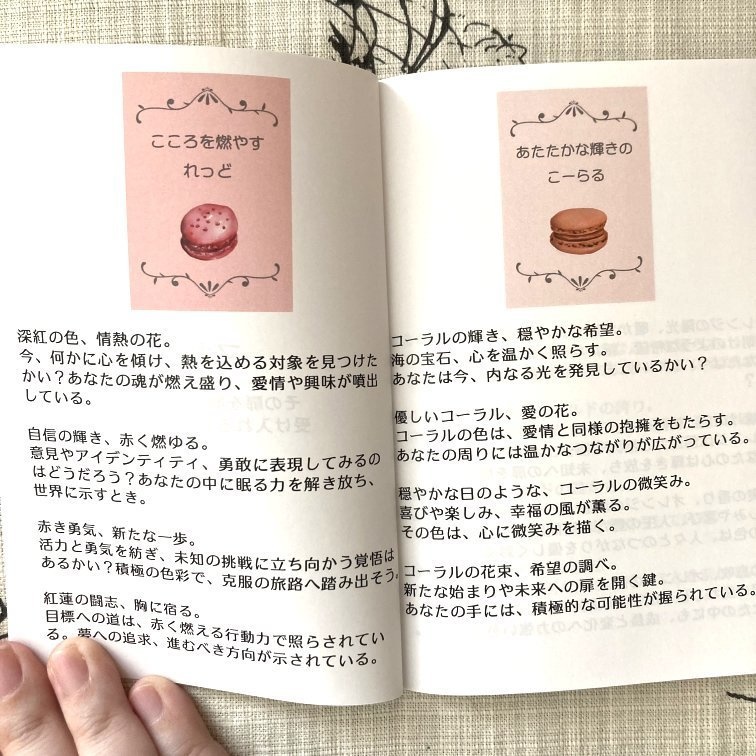 こころを燃やす
れっど
深紅の色、情熱の花。
今、何かに心を傾け、熱を込める対象を見つけた
かい？あなたの魂が燃え盛り、愛情や興味が噴出
している。
自信の輝き、赤く燃ゆる。
意見やアイデンティティ、勇敢に表現してみるの
はどうだろう？あなたの中に眠る力を解き放ち、
世界に示すとき。
赤き勇気、新たな一歩。
活力と勇気を紡ぎ、未知の挑戦に立ち向かう覚悟は
あるかい？積極の色彩で、克服の旅路へ踏み出そう。
紅蓮の闘志、胸に宿る。
目標への道は、赤く燃える行動力で照らされてい
る。夢への追求、進むべき方向が示されている。
あたたかな輝きの
こーらる
コーラルの輝き、穏やかな希望。
海の宝石、心を温かく照らす。
あなたは今、内なる光を発見しているかい？
優しいコーラル、愛の花。
コーラルの色は、愛情と同様の抱擁をもたらす。
あなたの周りには温かなつながりが広がっている。
穏やかな日のような、コーラルの微笑み。
喜びや楽しみ、幸福の風が薫る。
その色は、心に微笑みを描く。
コーラルの花束、希望の調べ。
新たな始まりや未来への扉を開く鍵。
あなたの手には、積極的な可能性が握られている。